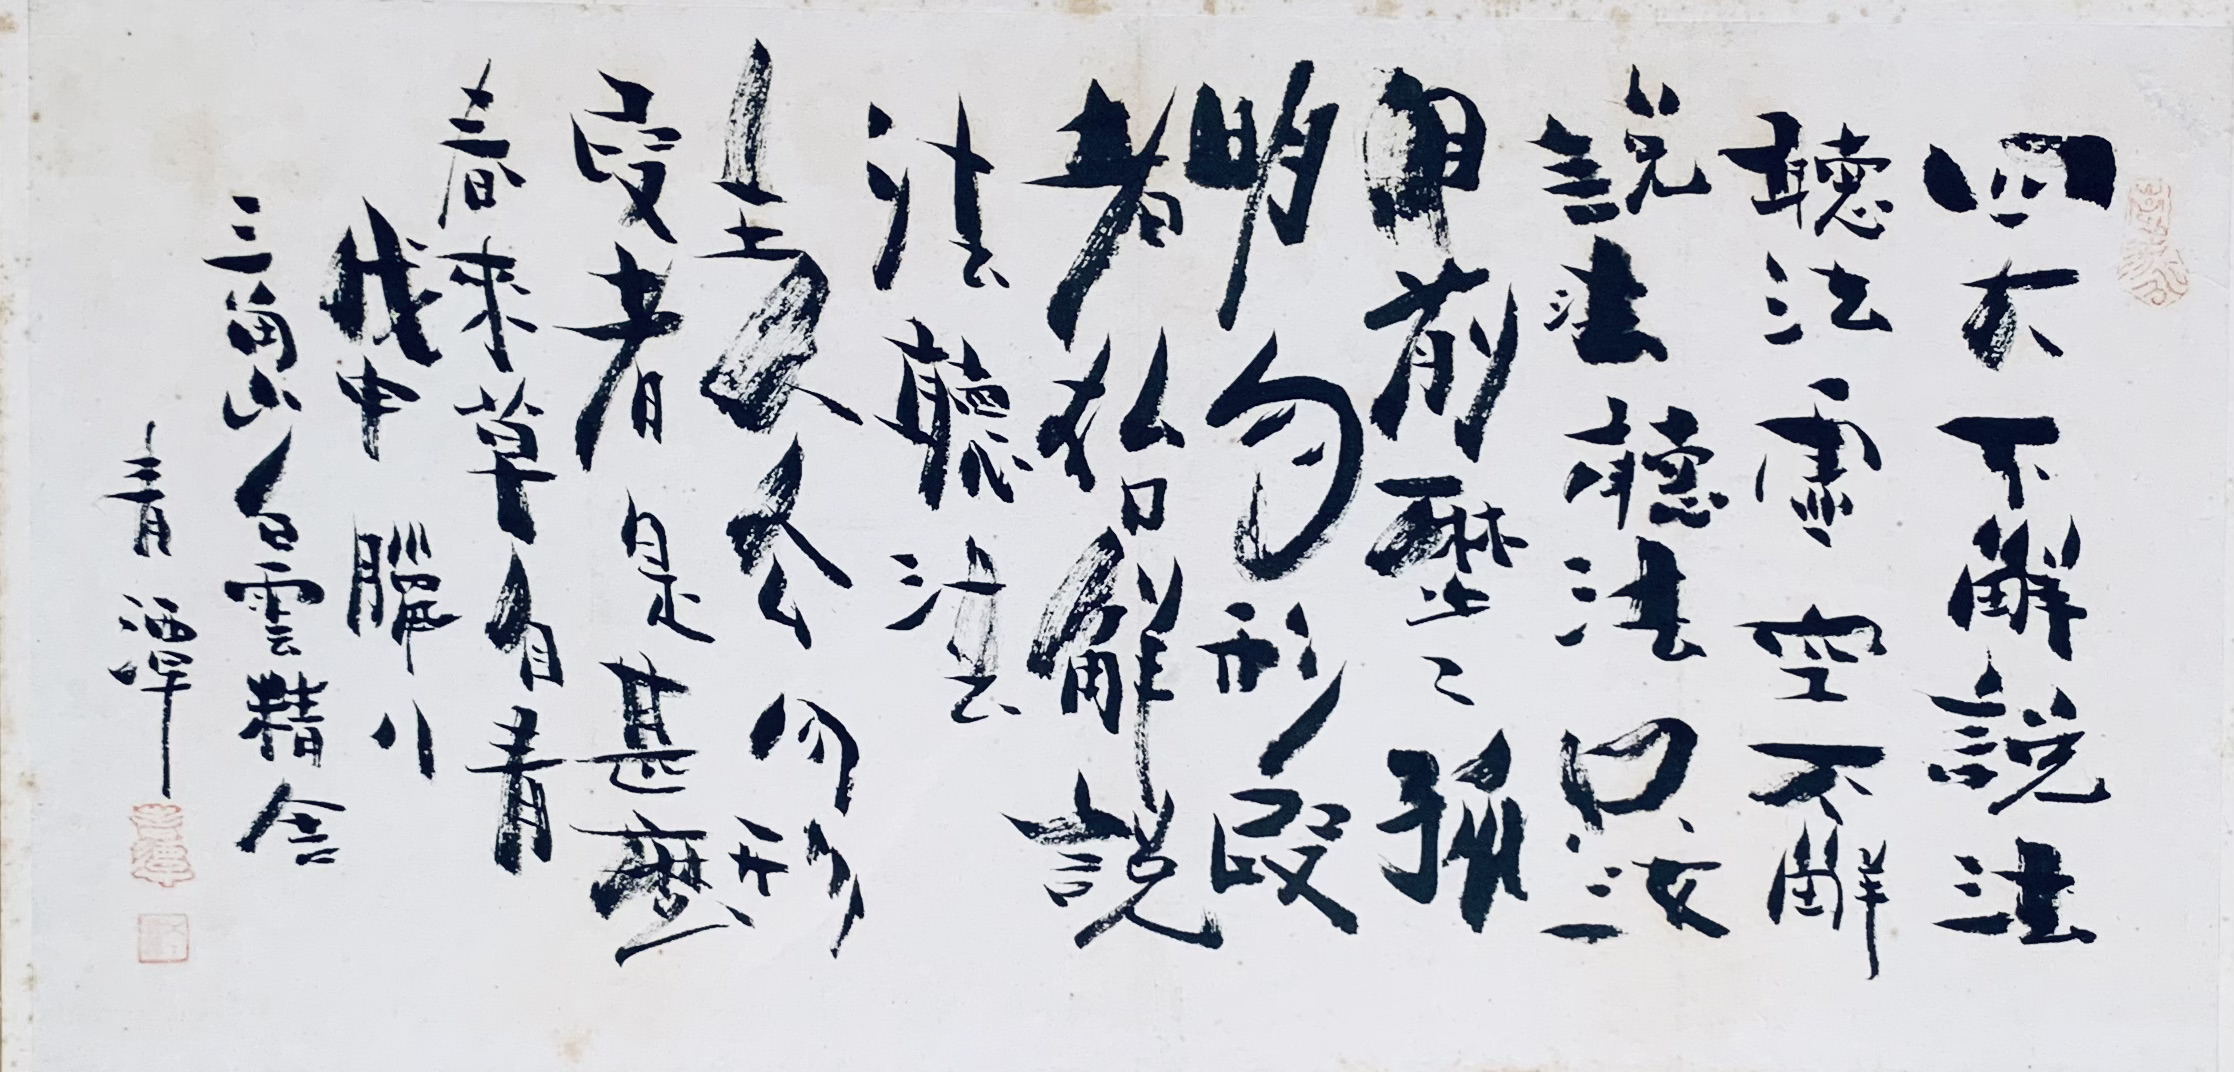 四大不解說法
聽法虛空不解
說法聽法只汝
目前歷々孤
明勿形段
者始解說
法聽法
主人公勿形
段者是甚麼
春來草自青
戊申臘八
三角山白雲精舍
青潭